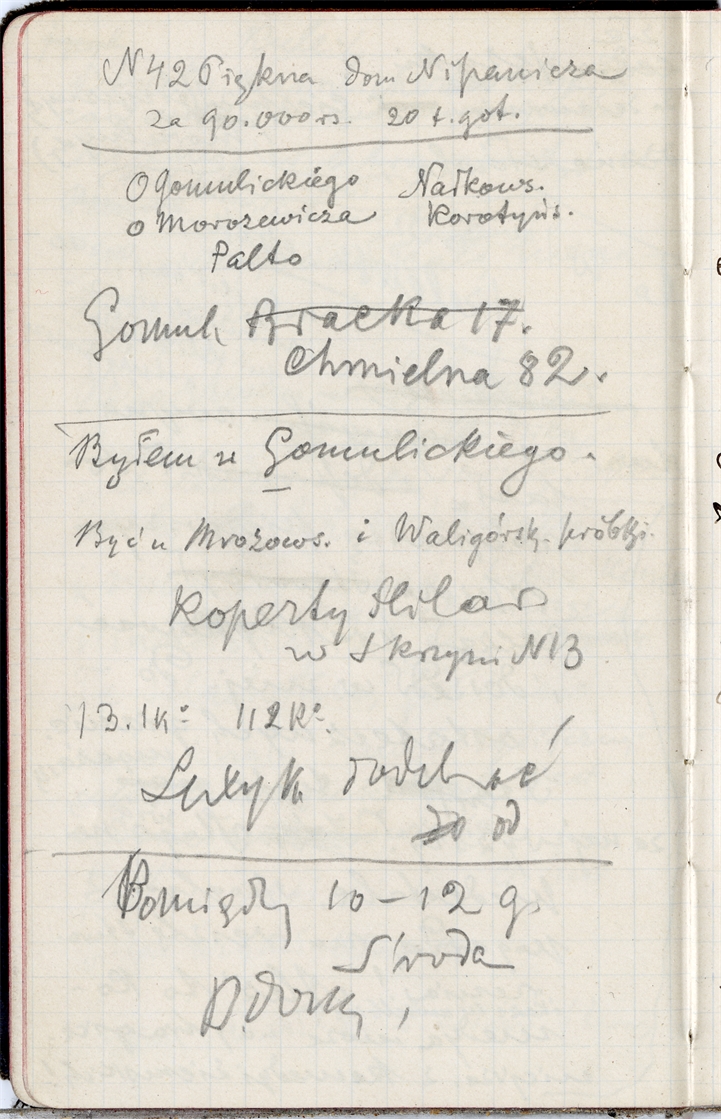 N 42 Piękna dom Nipanicza
za 90.000 rs. 20 t. got.
O Gomulickiego Nałkows.
o Morozewicza Korotyńs.
Palto
Gomul. Bracka 17.
Chmielna 82.
Byłem u Gomulickiego.
Być u Mrozows. i Waligórsk. próbki.
Koperty
w Skrzyni N13
13. 1k: 112 k:
odebrać
do od
Pomiędzy 10–12 g.
Środa